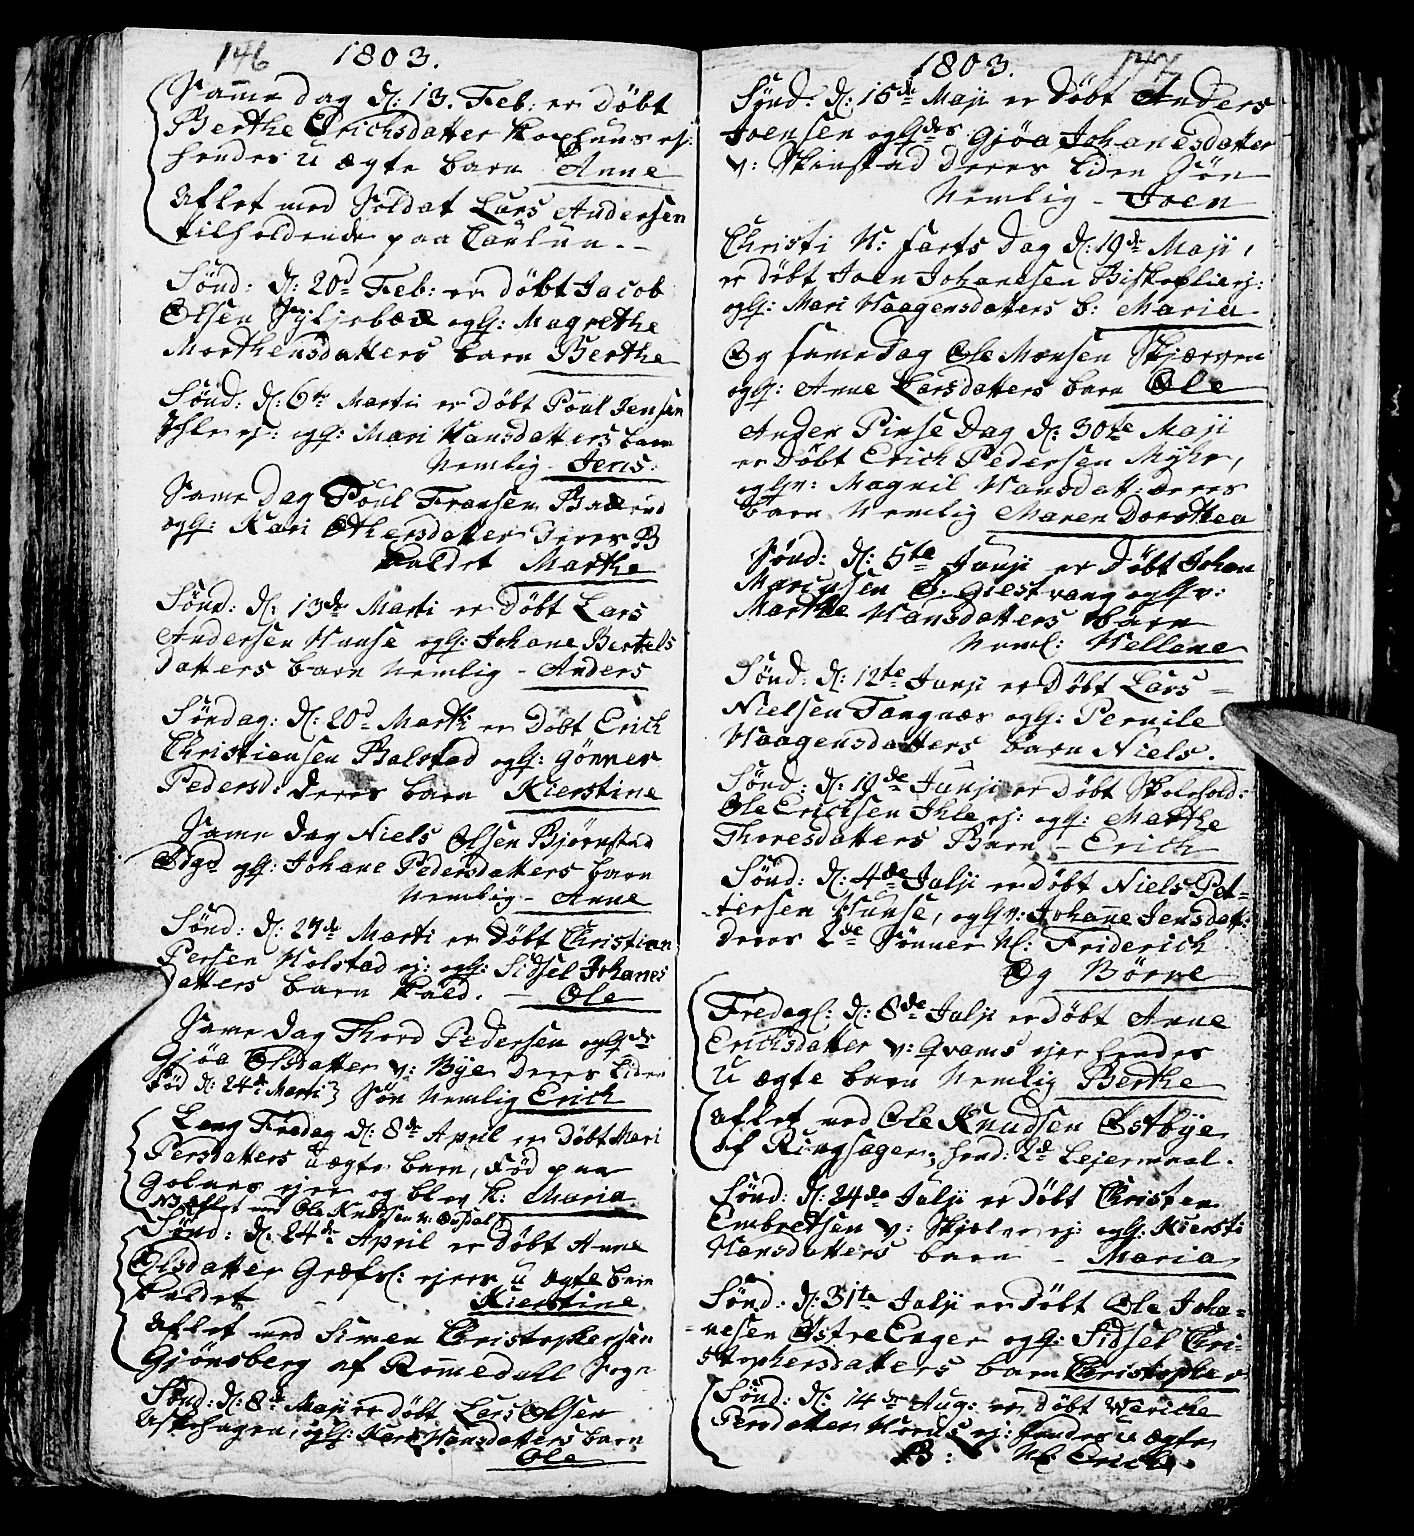 146 1803.
Samme dag d: 13. Feb: er døbt
Berthe Erichsdatter Kophuus ej:
hendes u ægte barn Anne
Aflet med Soldat Lars Andersen
tilholdende paa
Sønd: d: 20d Feb: er døbt Jacob
Olsen ogH: Magrethe
Morthensdatters barn Berthe
Sønd: d: 6te Marti er døbt Poul Jensen
Ihle ej: ogH: Mari Hansdatters barn
Nemlig - Jens.
Same Dag Poul Fransen
ogH: Kari Othersdatter Deres B
kaldet Marthe
Sønd: d: 13de Marti er døbt Lars
Andersen Hunse ogH: Johane Bertels
datters barn Nemlig - Anders
Søndag: d: 20d Marti er Døbt Erich
Christiansen Balstad ogH: Gønner
Pedersd: deres barn Kierstine
Same dag Niels Olsen Bjørnstad
Odgd ogH: Johane Pedersdatters barn
Nemlig - Anne
Sønd: d: 27de Marti er Døbt Christian
Persen Holstad ej: ogH: Sidsel Johanes
datters barn kald. - Ole
Same Dag Thord Pedersen ogHds
Gjøa Olsdatter v: Bye deres liden
fød d: 24de Marti} Søn Nemlig Erich
Lang Fredag d: 8de April er døbt Mari
Persdatters uægte barn, Fød paa
ejer og blev k: Maria
NB Aflet med Ole Knudsen v:
Sønd: d: 24de April er Døbt Anne
Olsdatter Græfs: ejers u ægte barn
kaldet Kierstine
Aflet med Simen Christophersen
Gjønsberg af Romedall Sogn
Sønd: d: 8de Maji er døbt Lars Olsen
Askehagen, ogH: Kari Hansdatters barn
Ole
1803. 147
Sønd: d: 15de Maji er Døbt Anders
Joensen ogHds Gjøa Johanesdatter
v: Skinstad deres liden Søn
Nemlig - Joen
Christi H: farts Dag d: 19de Maji,
er døbt Joen Johansen ej:
ogH: Mari Haagensdatters b: Maria
Og same dag Ole Monsen Skjærven
ogH: Anne Larsdatters barn Ole
Anden Pinse Dag d: 30te Maji
er Døbt Erich Pedersen Myhr,
ogHr: Magnil Hansdatt: deres
barn Nemlig Maren Dorothea
Sønd: d: 5te Junji er Døbt Johan
Mariusen Ø: Giestvang ogHv:
Marthe Hansdatters barn
Neml: Hellene
Sønd: d: 12te Junji er Døbt Lars
Nielsen Tangnæs ogH: Pernile
Haagensdatters barn Niels.
Sønd: d: 19de Junji er Døbt Skolehold:
Ole Erichsen Ihle ej: ogH: Marthe
Thoresdatters Barn - Erich
Sønd: d: 4de Julji er døbt Niels Pet-
tersen Hunse, ogHv: Johanne Jensdatt:
deres 2de Sønner N: Friderich
Og Børre
Fredag: d: 8de Julji er døbt Anne
Erichsdatter v: Qvams ejer hendes
U ægte barn Nemlig Berthe
aflet med Ole Knudsen Østbye
af Ringsager; hend: 2de Lejermaal.
Sønd: d: 24de Julji er døbt Christen
Embretsen v: ej: ogH: Kiersti
Hansdatters barn - Maria
Sønd: d: 31te Julji er Døbt Ole Joha-
nesen Østre Enger ogH: Sidsel Chri-
stophersdatters barn Christopher
Sønd: d: 14de Aug: er døbt Mariche
Persdatter ej: hendes u ægte
B: N: Erich.